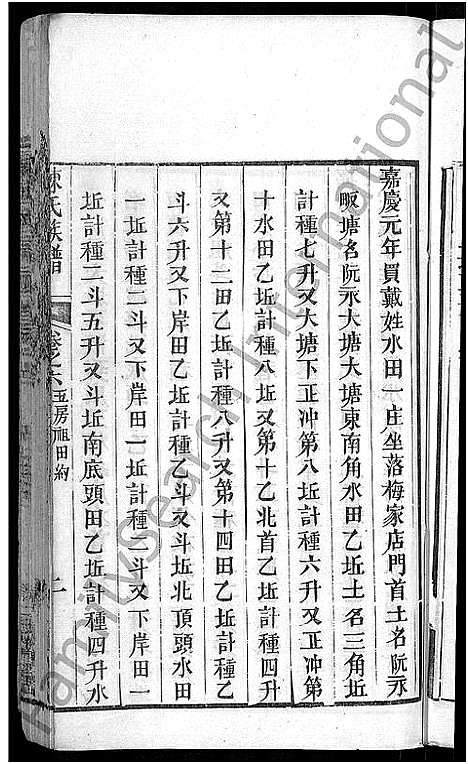 嘉慶元年買戴姓水田一庄坐落梅家店門首土名阮示
畈塘名阮示大塘大塘東南角水田乙坵土名三角坵
計種七升又大塘下正冲第八坵計種六升又正冲第
十水田乙坵計種八坵又第十乙北首乙坵計種四升
又第十二田乙坵計種八升又第十四田乙坵計種乙
斗六升又下岸田乙坵計種乙斗又斗坵北頂頭水田
一坵計種二斗又下岸田一坵計種二斗又下岸田一
坵計種二斗五升又斗坵南底頭田乙坵計種四升水
陳氏族譜 卷之六 五房祖田約 二
FamilySearch International